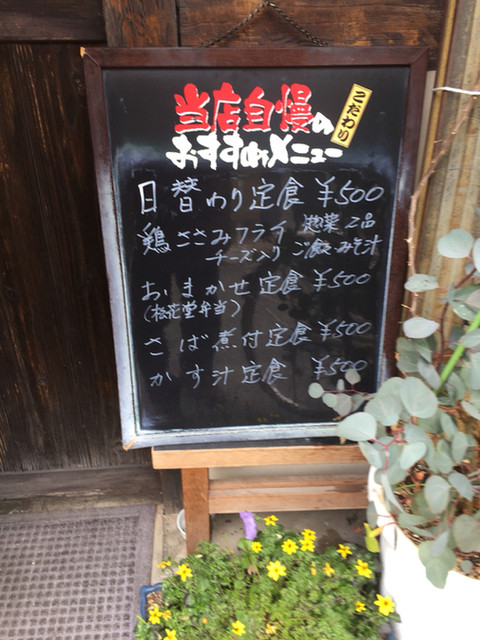 当店自慢の
こだわり
おすすめメニュー
日替わり定食 ¥500
鶏ささみフライ 惣菜2品
チーズ入り ご飯・みそ汁
おまかせ定食 ¥500
(松花堂弁当)
さば煮付定食 ¥500
かす汁定食 ¥500